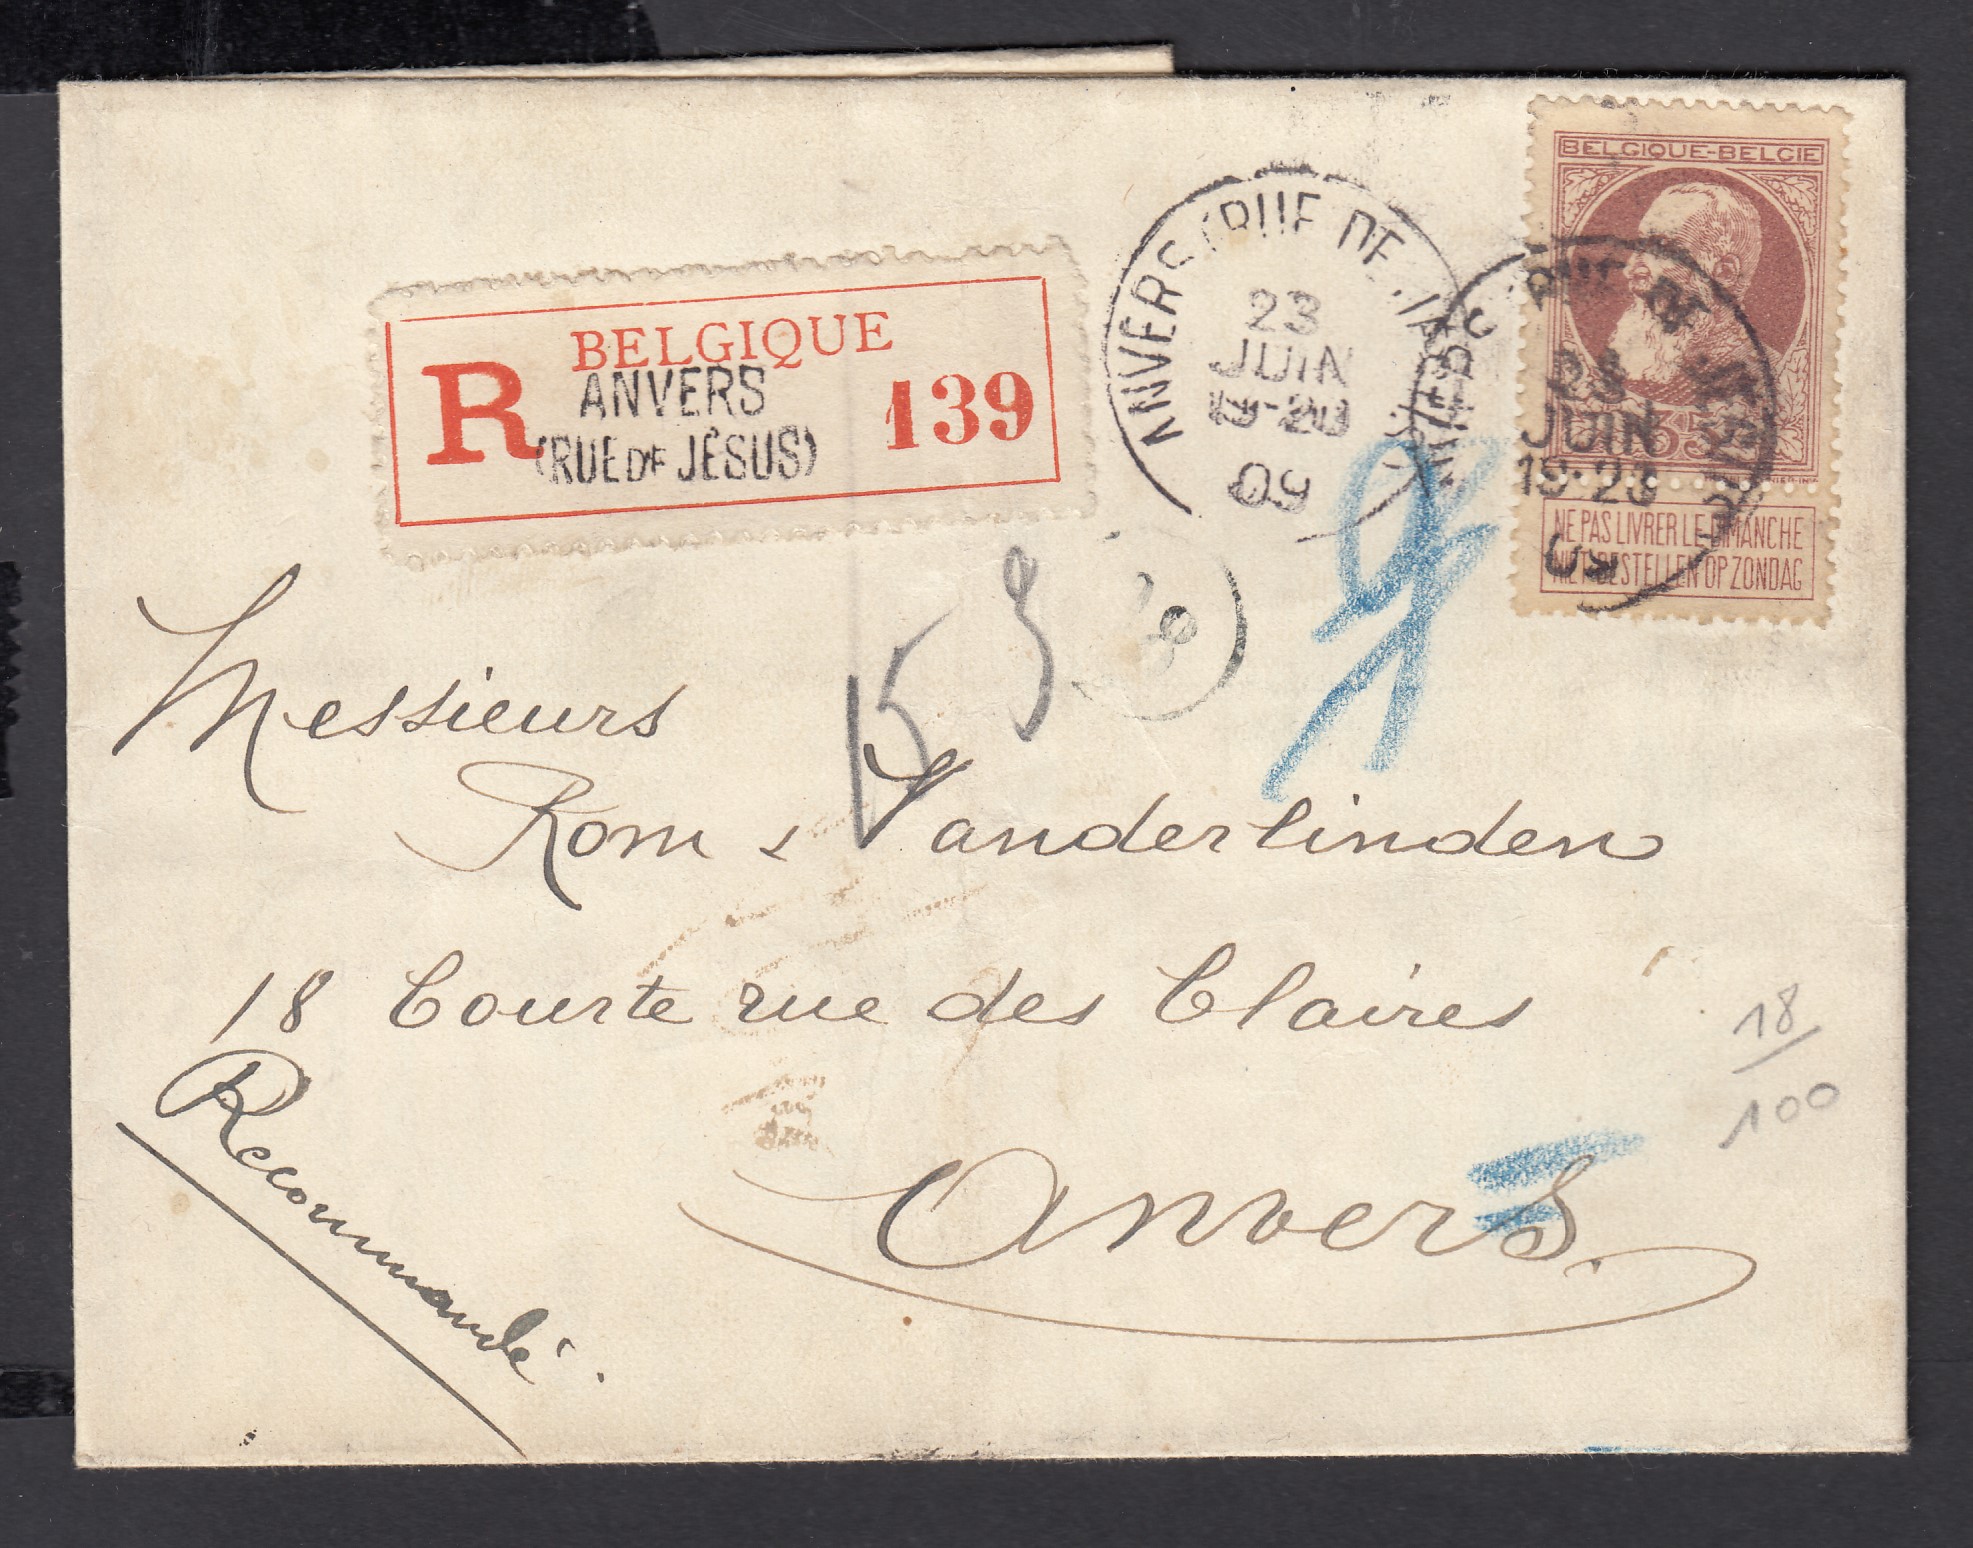 BELGIQUE-BELGIE
35 35
NE PAS LIVRER LE DIMANCHE
NIET BESTELLEN OP ZONDAG
ANVERS (RUE DE
23
JUIN
19-20
09
RUE DE JESUS
23
JUIN
19-20
09
BELGIQUE
R ANVERS 139
(RUE DE JÉSUS)
15
Messieurs
Rom & Vanderlinden
18 Courte rue des Claires
Anvers.
Recommandé.
18
100